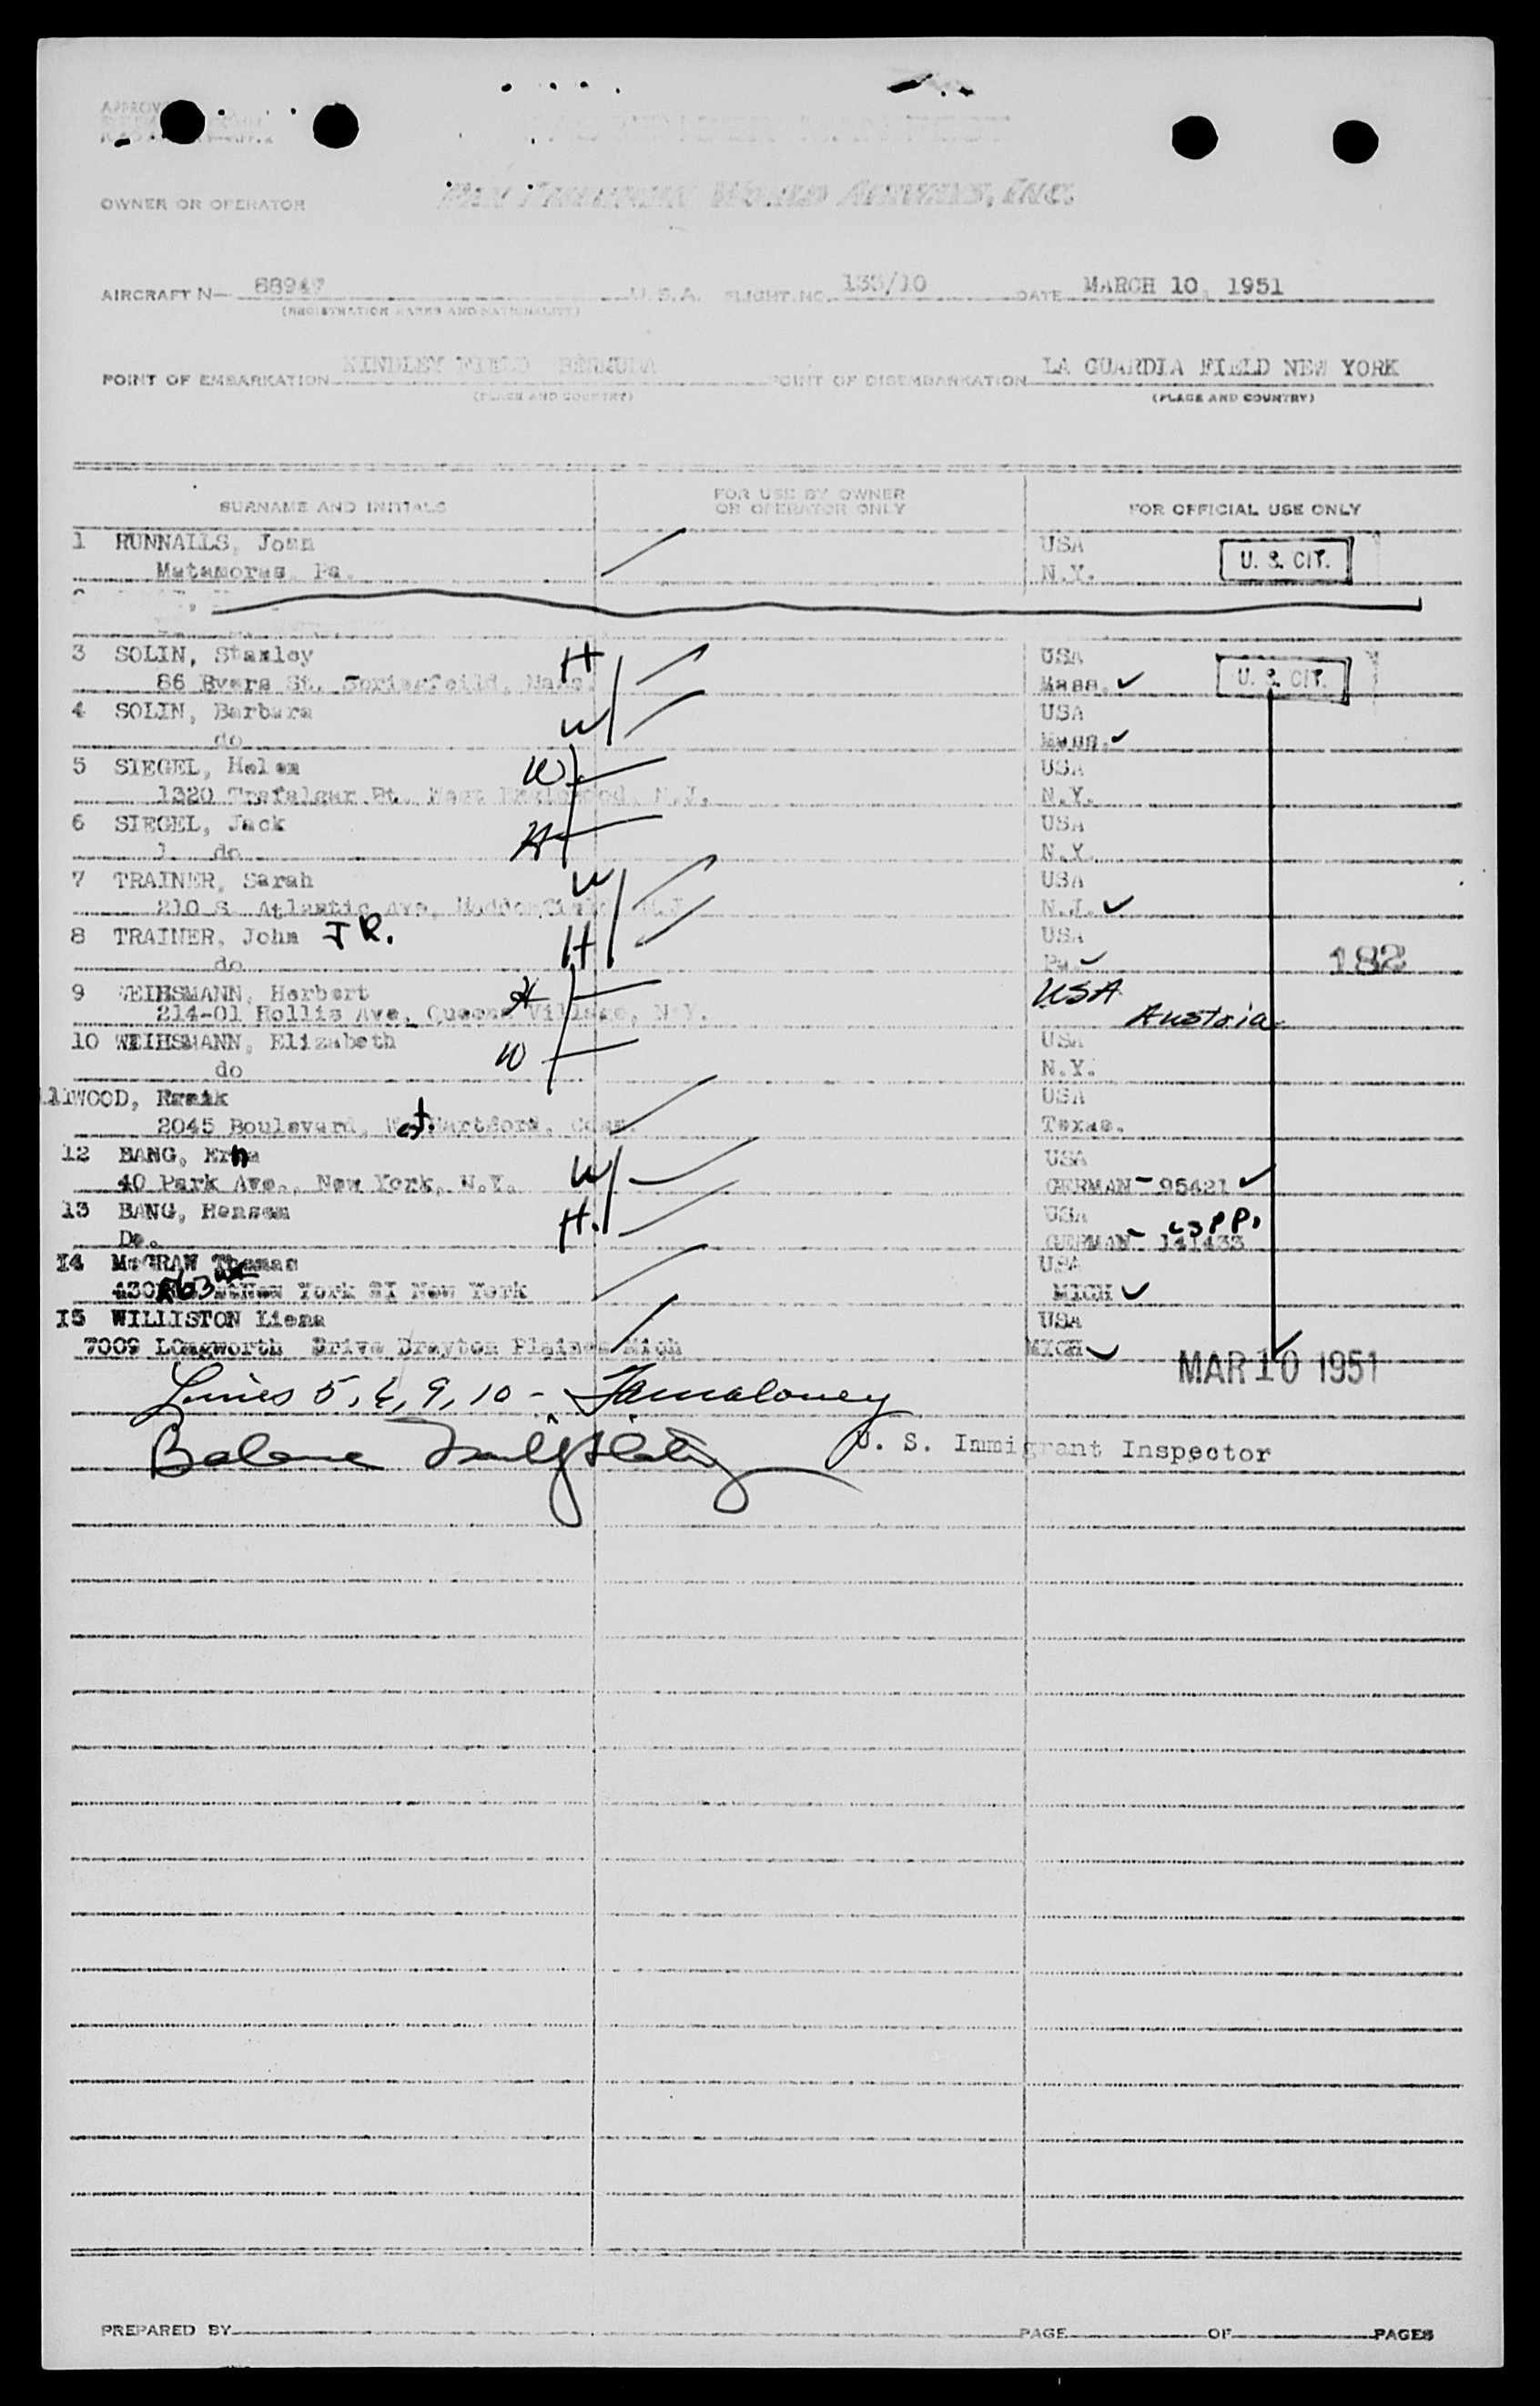 OWNER OR OPERATOR PAN AMERICAN WORLD AIRWAYS, INC.
AIRCRAFT N— 88947 U.S.A. FLIGHT NO. 133/10 DATE MARCH 10, 1951
(REGISTRATION MARKS AND NATIONALITY)
POINT OF EMBARKATION KINDLEY FIELD BERMUDA POINT OF DISEMBARKATION LA GUARDIA FIELD NEW YORK
(PLACE AND COUNTRY) (PLACE AND COUNTRY)
SURNAME AND INITIALS FOR USE BY OWNER OR OPERATOR ONLY FOR OFFICIAL USE ONLY
1 RUNNALLS, Joan USA
Matamoras, Pa. N.Y. U. S. CIT.
3 SOLIN, Stanley H USA
86 Byers St. Mass. U. S. CIT.
4 SOLIN, Barbara W USA
do Mass.
5 SIEGEL, Helen W USA
1320 Trafalgar St. N.J. N.Y.
6 SIEGEL, Jack H USA
do N.Y.
7 TRAINER, Sarah W USA
210 S. Atlantic Ave, N.J.
8 TRAINER, John JR. H USA
do Pa. 182
9 WEIHSMANN, Herbert H USA
214-01 Hollis Ave, Queens Village, N.Y. Austria
10 WEIHSMANN, Elizabeth W USA
do N.Y.
11 WOOD, USA
2045 Boulevard, West Hartford, Conn. Texas.
12 BANG, Erna W USA
40 Park Ave., New York, N.Y. GERMAN - 95421
13 BANG, Hansem H. USA
Do. GERMAN - 141433
14 McGRAW Thomas USA
430 New York 21 New York MICH
15 WILLISTON Liena USA
7009 Longworth Drive Drayton Plaines Mich MICH
MAR 10 1951
Lines 5, 6, 9, 10 -
Balance
U. S. Immigrant Inspector
PREPARED BY PAGE OF PAGES